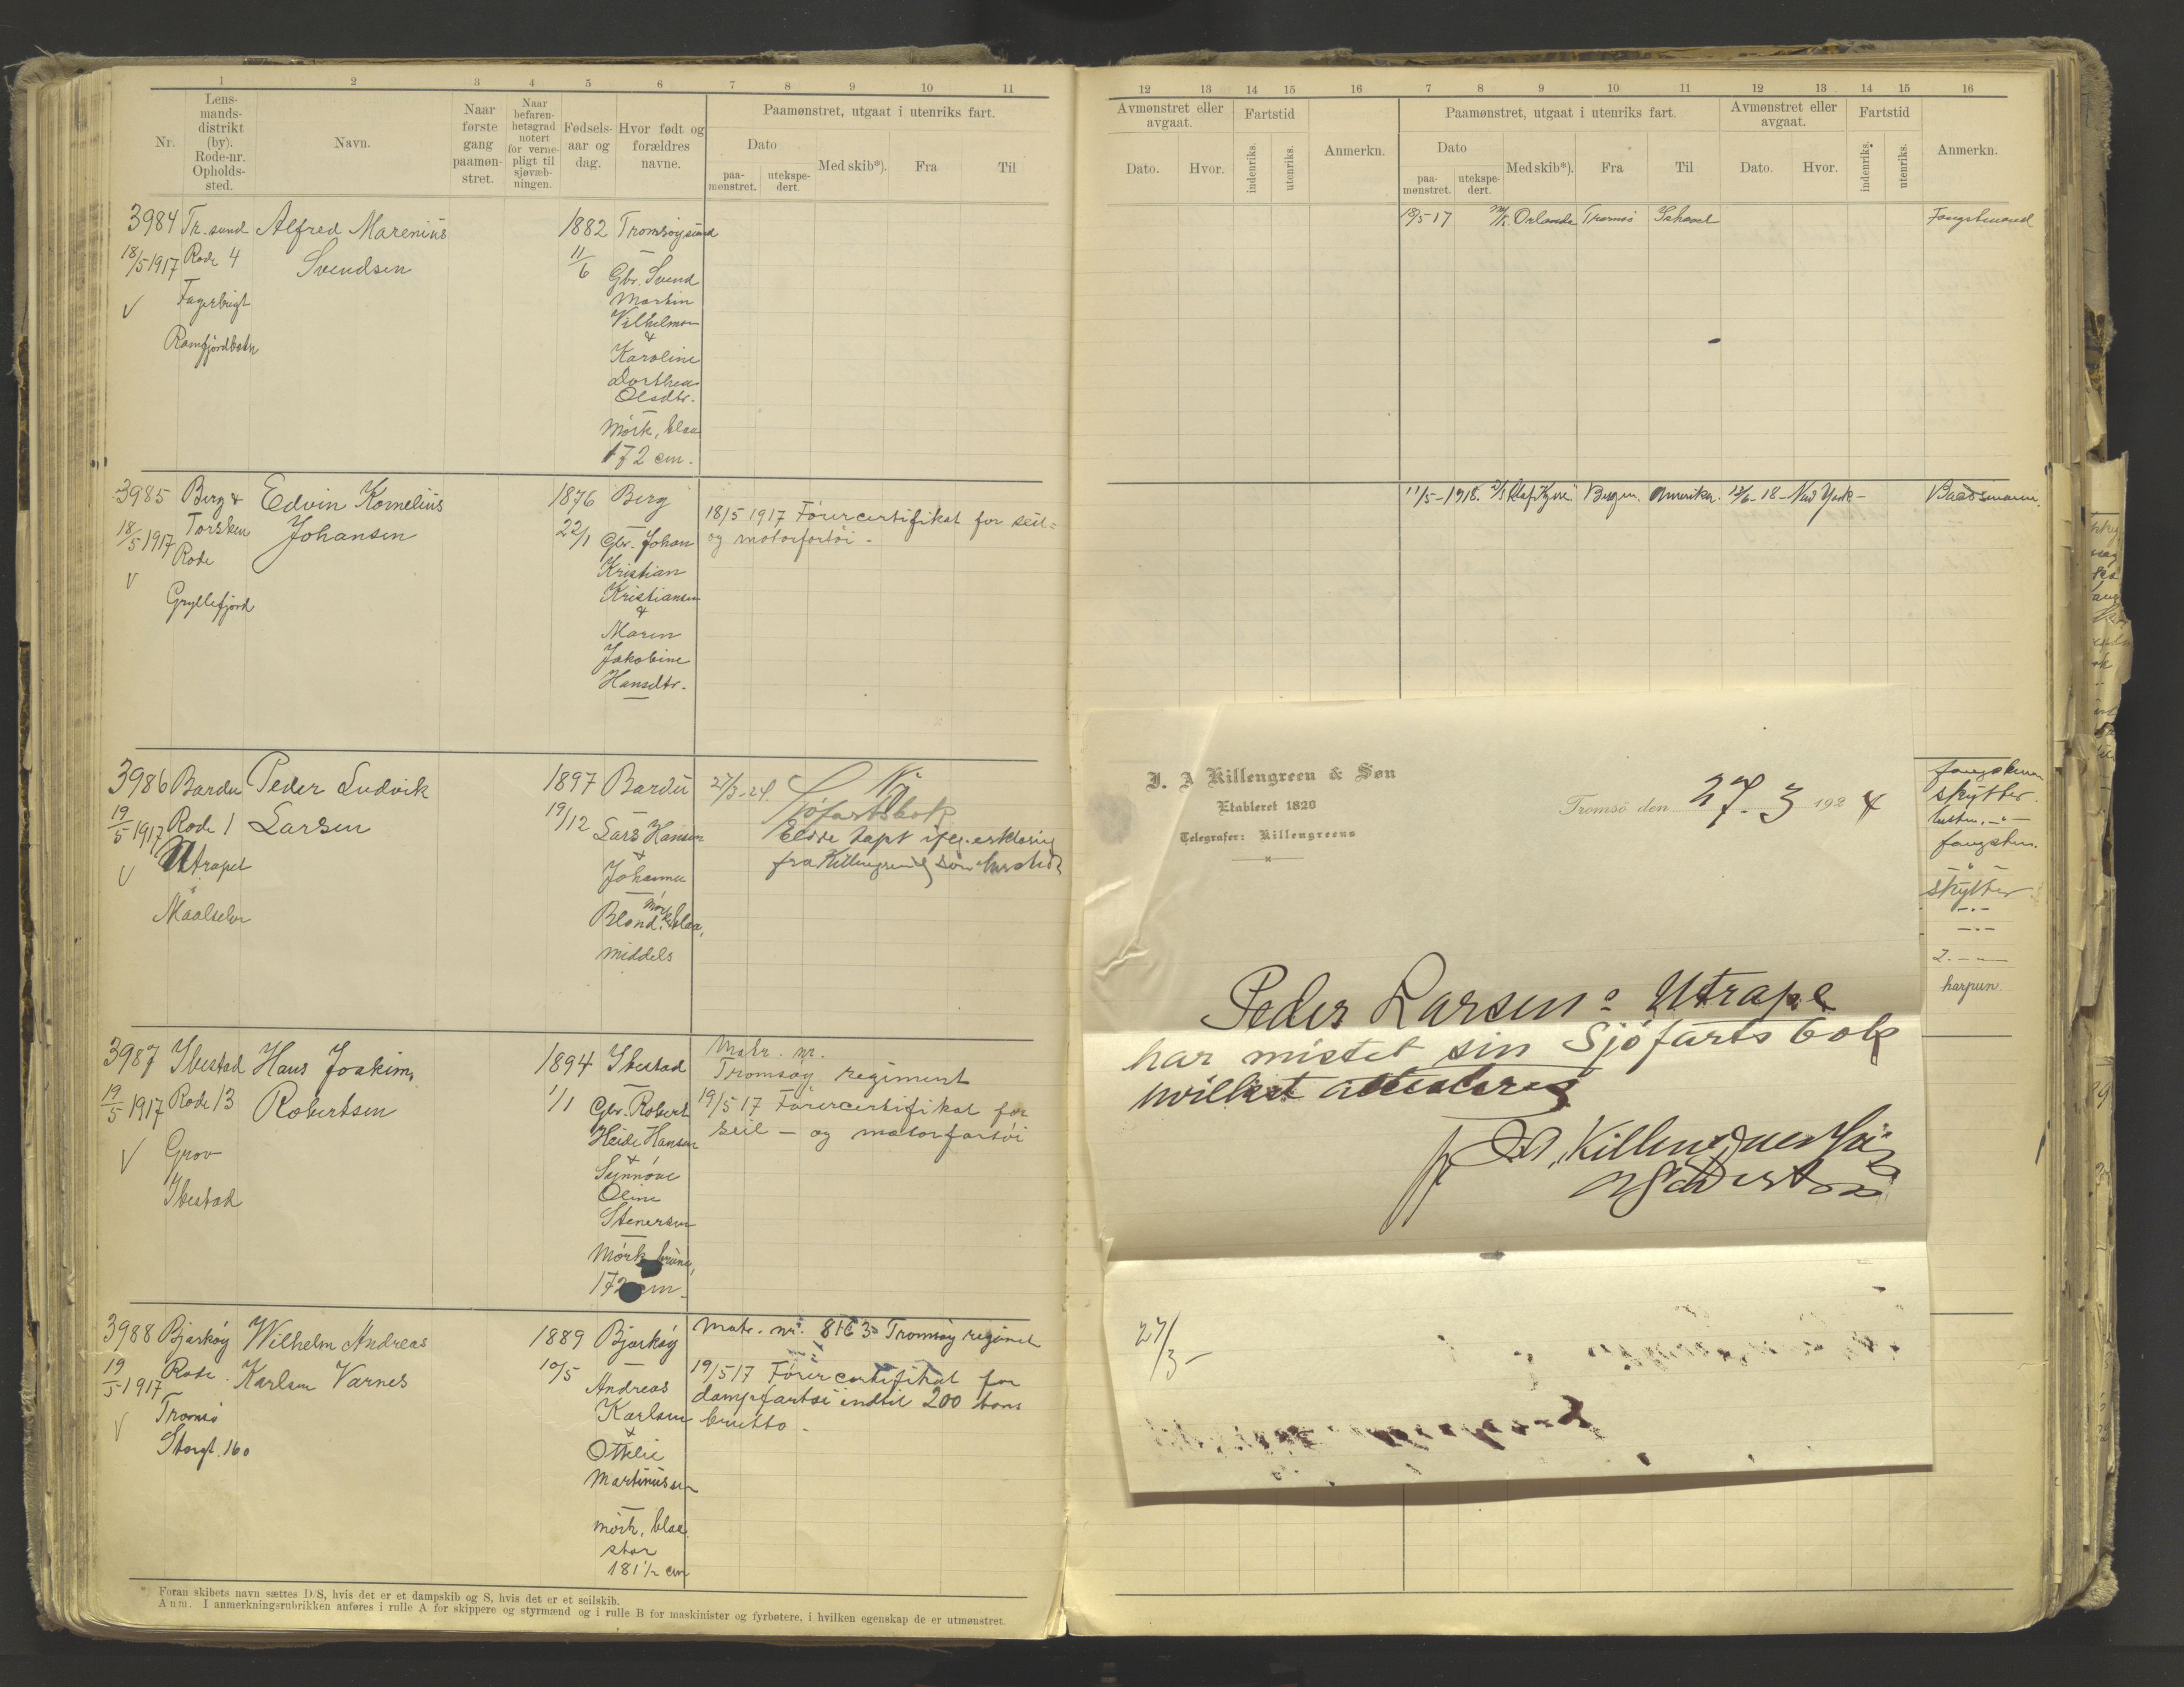 1 2 3 4 5 6 7 8 9 10 11
Nr. Lens-mands-distrikt (by). Rode-nr. Opholds-sted. Navn. Naar første gang paamøn-stret. Naar befaren-hetsgrad notert for verne-pligt til sjøvæb-ningen. Fødsels-aar og dag. Hvor født og forældres navne.
Paamønstret, utgaat i utenriks fart.
Dato Med skib*). Fra Til
paa-mønstret. utekspe-dert.
3984 Tr.sund Alfred Marenius 1882 Tromsøysund
18/5 1917 Rode 4 Svendsen 11/6 Gbr. Svend
Fagerbugt Martin
Vilhelmsen
Ramfjordbotn &
Karoline
Dorthea
Olsdtr.
Mørk, blaa
172 cm.
3985 Berg & Edvin Kornelius 1876 Berg
18/5 1917 Torsken Johansen 22/1 Gbr. Johan
Rode Kristian
Gryllefjord Kristiansen
&
Maren
Jakobine
Hansdtr.
18/5 1917 Förercertifikat for seil-
og motorfartöi.
3986 Bardu Peder Ludvik 1897 Bardu
19/5 1917 Rode 1 Larsen 19/12 Lars Hansen
Utrapel &
Johanna
Maalselv Blond, mörk blaa,
middels
27/3-24. Ny
Sjöfartsbok
Eldre tapt ifg. erklæring
fra Killengreen & Søn
3987 Ibestad Hans Joakim 1894 Ibestad
19/5 1917 Rode 13 Robertsen 1/1 Gbr. Robert
Grov Heide Hansen
&
Ibestad Synnöve
Oline
Stenersen
Mörk, brune,
172 cm.
Matr. nr.
Tromsøy regiment
19/5 17 Förercertifikat for
seil- og motorfartöi
3988 Bjarköy Wilhelm Andreas 1889 Bjarköy
19/5 1917 Rode Karlsen Varnes 10/5 Andreas
Tromsö Karlsen
Storgt. 160 &
Ottelie
Martinussen
mörk, blaa
stor
181 1/2 cm
Matr. nr. 8163 Tromsöy regiment
19/5 17 Förercertifikat for
dampfartöi indtil 200 tons
brutto.
*) Foran skibets navn sættes D/S, hvis det er et dampskib og S, hvis det er et seilskib.
Anm. I anmerkningsrubrikken anføres i rulle A for skippere og styrmænd og i rulle B for maskinister og fyrbøtere, i hvilken egenskap de er utmønstret.
12 13 14 15 16 7 8 9 10 11 12 13 14 15 16
Avmønstret eller avgaat. Fartstid Anmerkn. Paamønstret, utgaat i utenriks fart. Avmønstret eller avgaat. Fartstid Anmerkn.
Dato. Hvor. indenriks. utenriks. Dato Med skib*). Fra Til Dato. Hvor. indenriks. utenriks.
paa-mønstret. utekspe-dert.
18/5-17 Orlanda Tromsö Ishavet Fangstmand
11/5-1918. Bergen. Amerika. 18 New York- Baadsmann.
skytter.
skytter
harpun.
J. A Killengreen & Søn
Etableret 1820
Telegrafer: Killengreens
Tromsö den 27.-3 1924
Peder Larsen, Utrape
har mistet sin Sjöfarts bok
hvilket attesteres
27/3-